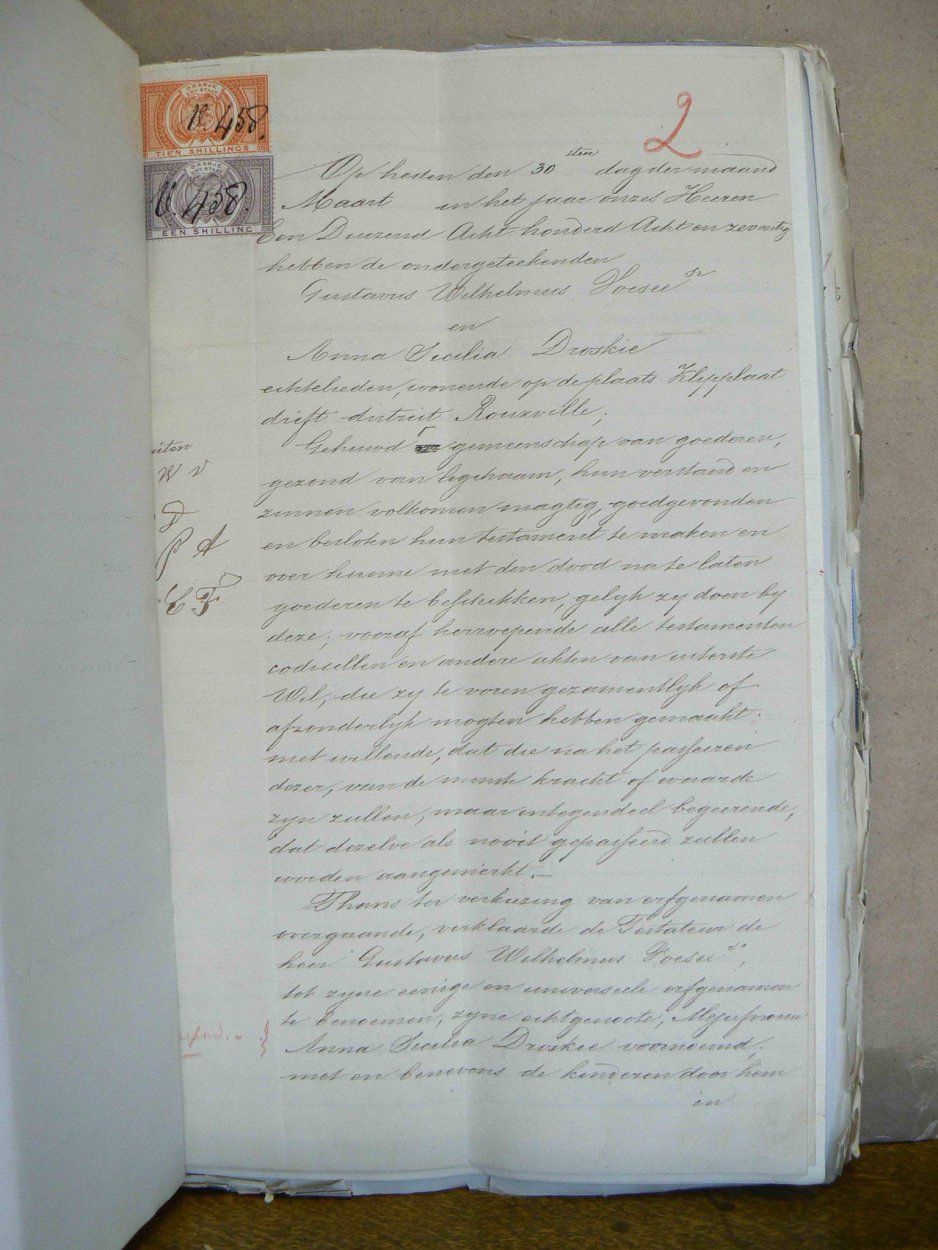 2
ORANJE
VRY STAAT
N. 458.
TIEN SHILLINGS
ORANJE
VRY STAAT
N. 458.
EEN SHILLING
Op heden den 30 sten dag der maand
Maart en het jaar onzes Heeren
Een Duizend Acht honderd Acht en zeventig
hebben de ondergeteekenden
Gustavus Wilhelmus Voeseé Sr
en
Anna Secilia Droskie
echtelieden, wonende op de plaats Klipplaat
drift district Rouxville;
Gehuwd gemeenschap van goederen,
gezond van ligchaam, hun verstand en
zinnen volkomen magtig, goedgevonden
en besloten hun testament te maken en
over hunne met den dood na te laten
goederen te beschikken, gelyk zy doen by
deze; vooraf herroepende alle testamenten
codicillen en andere akten van uiterste
Wil, die zy te voren gezamentlyk of
afzonderlyk mogten hebben gemaakt;
met willende, dat die na het passeeren
dezer, van de minste kracht of waarde
zyn zullen, maar integendeel begeerende,
dat dezelve als nooit gepasseerd zullen
worden aangemerkt.—
Thans ter verkiezing van erfgenamen
overgaande, verklaarde de Testateur de
heer Gustavus Wilhelmus Voeseé Sr,
tot zyne eenige en universeele erfgenamen
te benoemen, zyne echtgenoote, Mejufvrouw
Anna Secilia Droskie voornoemd,
met en benevens de kinderen door hem
in
W V
D
P A
E F